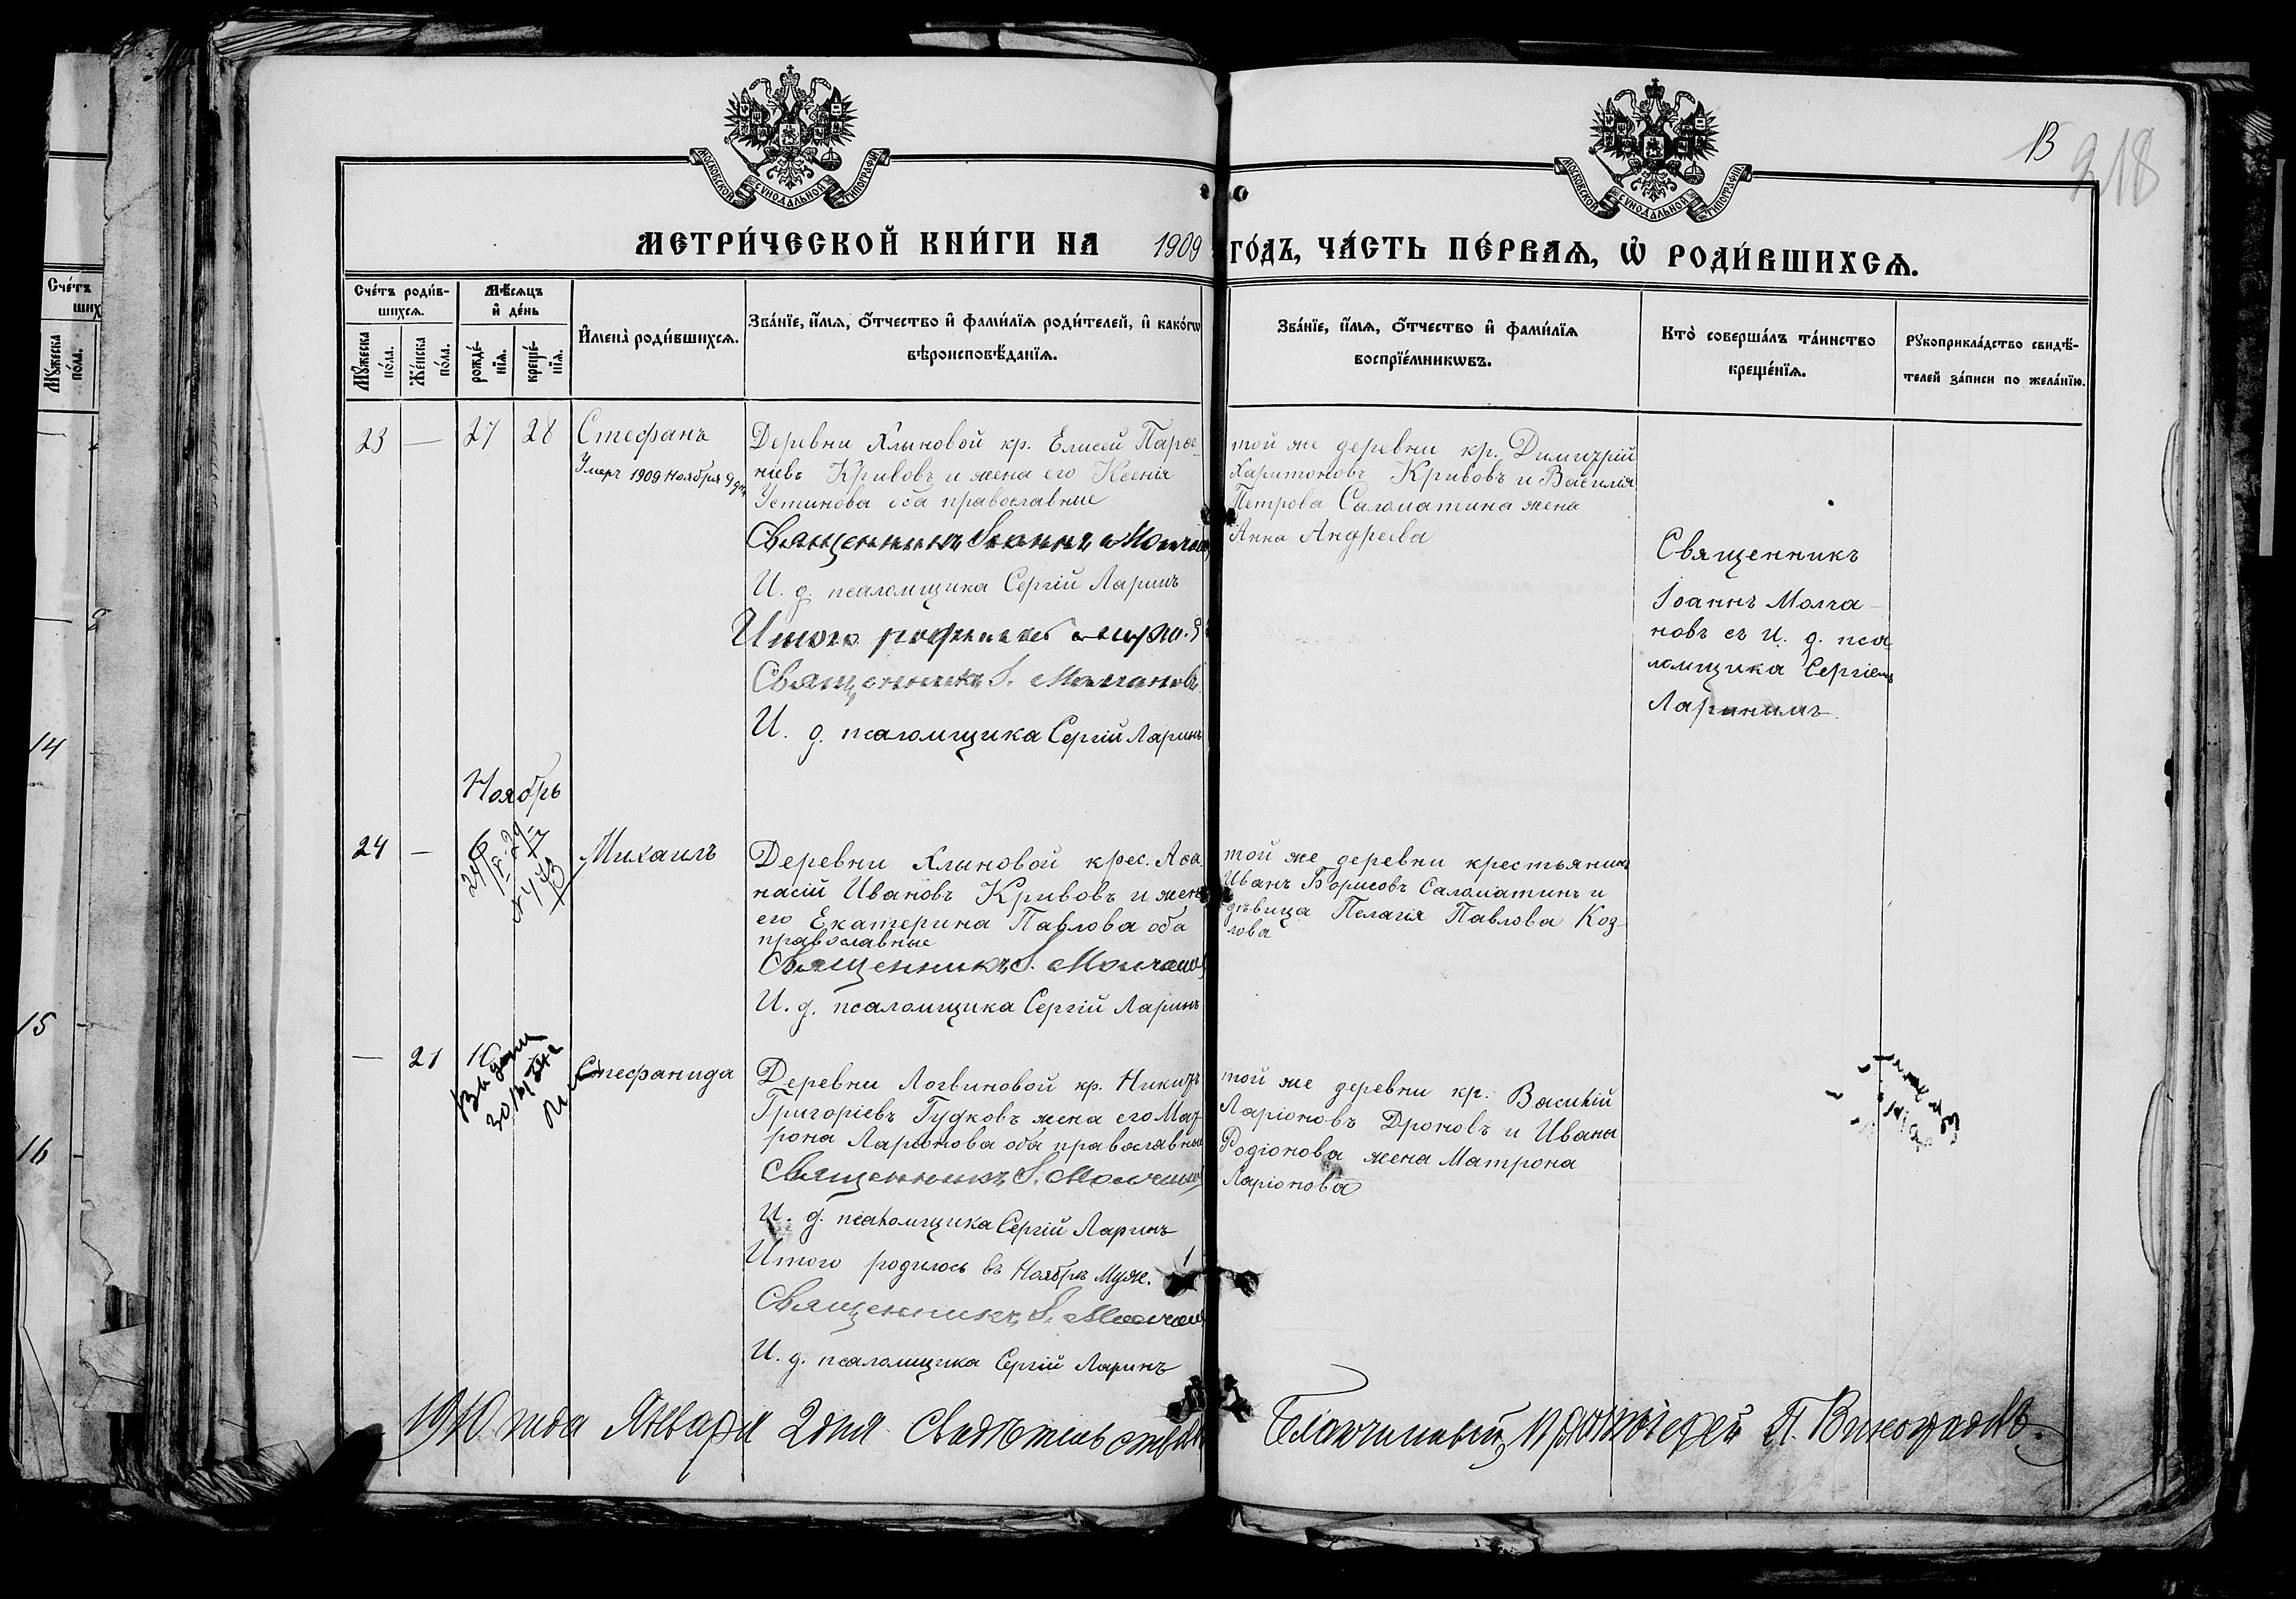 МОСКОВСКОЙ СѴНОДАЛЬНОЙ ТИПОГРАФІИ
МОСКОВСКОЙ СѴНОДАЛЬНОЙ ТИПОГРАФІИ
13
218
МЕТРИ́ЧЕСКОЙ КНИ́ГИ НА 1909 ГО́ДЪ, ЧА́СТЬ ПЕ́РВАѦ, Ѡ҆ РОДИ́ВШИХСѦ.
Сче́тъ роди́в-
шихсѧ.
Мѣ́сѧцъ
и҆ де́нь
Мꙋ́жеска
по́ла.
Же́нска
по́ла.
рожде́-
нїѧ.
креще́-
нїѧ.
И҆мена̀ роди́вшихсѧ.
Зва́нїе, и҆́мѧ, ѻ҆́тчество и҆ фами́лїѧ роди́телей, и҆ како́гѡ
вѣроисповѣ́данїѧ.
Зва́нїе, и҆́мѧ, ѻ҆́тчество и҆ фами́лїѧ
воспрїе́мникѡвъ.
Кто̀ соверша́лъ та́инство
креще́нїѧ.
Рꙋкоприкла́дство свидѣ́-
телей за́писи по жела́нїю.
Сче́тъ
ших
Мꙋ́жеска
по́ла.
14
15
16
23 — 27 28 Стефанъ
Умеръ 1909 ноября 9 дня
Деревни Клыновой кр. Елисей Парѳе-
ніевъ Кривовъ и жена его Ксенія
Устинова оба православные
Священникъ Іоаннъ Молчановъ
И. д. псаломщика Сергій Ларинъ
Итого родилось
Священникъ І. Молчановъ
И. д. псаломщика Сергій Ларинъ
той же деревни кр. Димитрій
Харитоновъ Кривовъ и Василія
Петрова Саломатина жена
Анна Андреева
Священникъ
Іоаннъ Молча-
новъ съ И. д. пса
ломщика Сергіемъ
Ларинымъ
Ноябрь
24 — 6 7 Михаилъ
Деревни Клыновой крес. Аѳа
насій Ивановъ Кривовъ и жена
его Екатерина Павлова оба
православные
Священникъ І. Молчановъ
И. д. псаломщика Сергій Ларинъ
той же деревни крестьянинъ
Иванъ Борисовъ Саломатинъ и
дѣвица Пелагія Павлова Коз-
лова
— 21 Стефанида
Деревни Логвиновой кр. Никита
Григоріевъ Гудковъ жена его Мат-
рона Ларіонова оба православные
Священникъ І. Молчановъ
И. д. псаломщика Сергій Ларинъ
Итого родилось въ Ноябрѣ Муж. 1
Священникъ І. Молчановъ
И. д. псаломщика Сергій Ларинъ
той же деревни кр. Василій
Ларіоновъ Дроновъ и Ивана
Родіонова жена Матрона
Ларіонова
1910 года Января 2 дня Свидѣтельствовалъ Благочинный, протоіерей П. Виноградовъ.